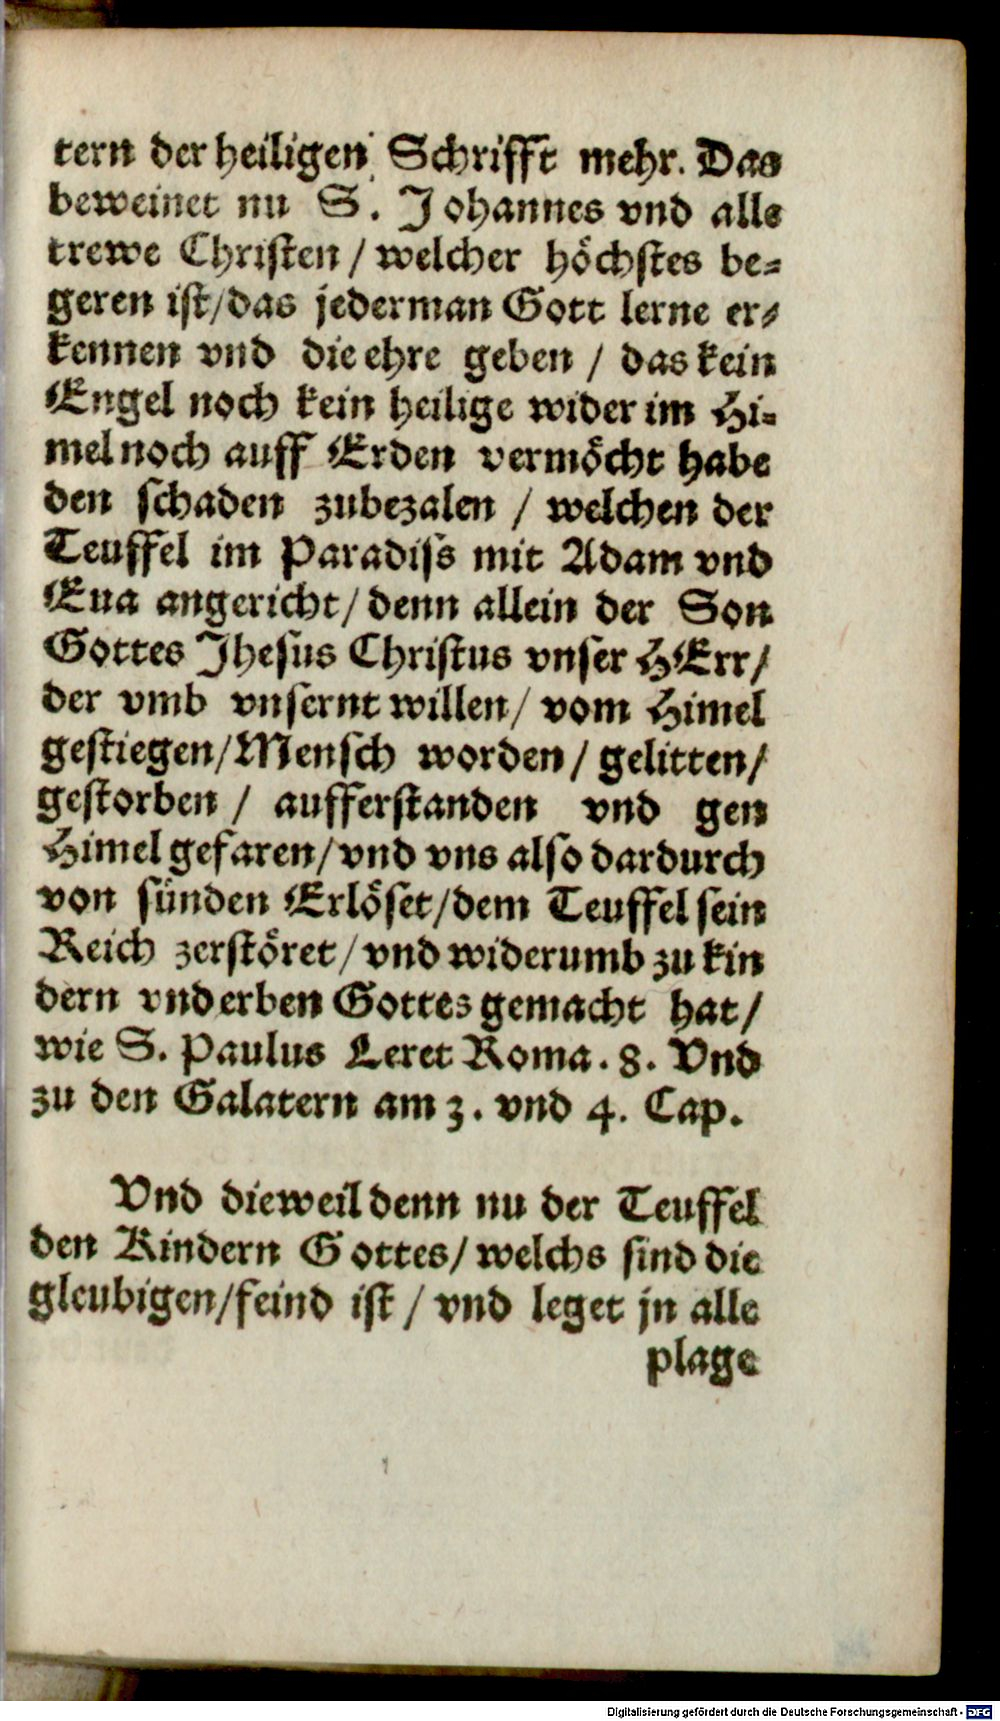 tern der heiligen Schrifft mehr. Das
beweinet nu S. Johannes vnd alle
trewe Christen / welcher höchstes be-
geren ist/das jederman Gott lerne er-
kennen vnd die ehre geben / das kein
Engel noch kein heilige wider im Hi-
mel noch auff Erden vermöcht habe
den schaden zubezalen / welchen der
Teuffel im Paradiss mit Adam vnd
Eua angericht/ denn allein der Son
Gottes Jhesus Christus vnser HErr/
der vmb vnsernt willen/ vom Himel
gestiegen/Mensch worden/ gelitten/
gestorben / aufferstanden vnd gen
Himel gefaren/vnd vns also dardurch
von sünden Erlöset/dem Teuffel sein
Reich zerstöret/vnd widerumb zu kin
dern vnd erben Gottes gemacht hat/
wie S. Paulus Leret Roma. 8. Vnd
zu den Galatern am 3. vnd 4. Cap.
Vnd dieweil denn nu der Teuffel
den Kindern Gottes/ welchs sind die
gleubigen/feind ist / vnd leget jn alle
plage
Digitalisierung gefördert durch die Deutsche Forschungsgemeinschaft - DFG